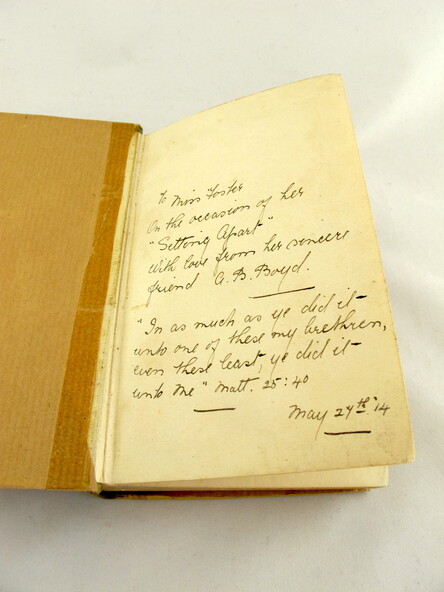 To Miss Foster
On the occasion of her
"Setting Apart"
with love from her sincere
friend A. B. Boyd.
"In as much as ye did it
unto one of these my brethren,
even these least, ye did it
unto Me" Matt. 25:40
May 24th '14